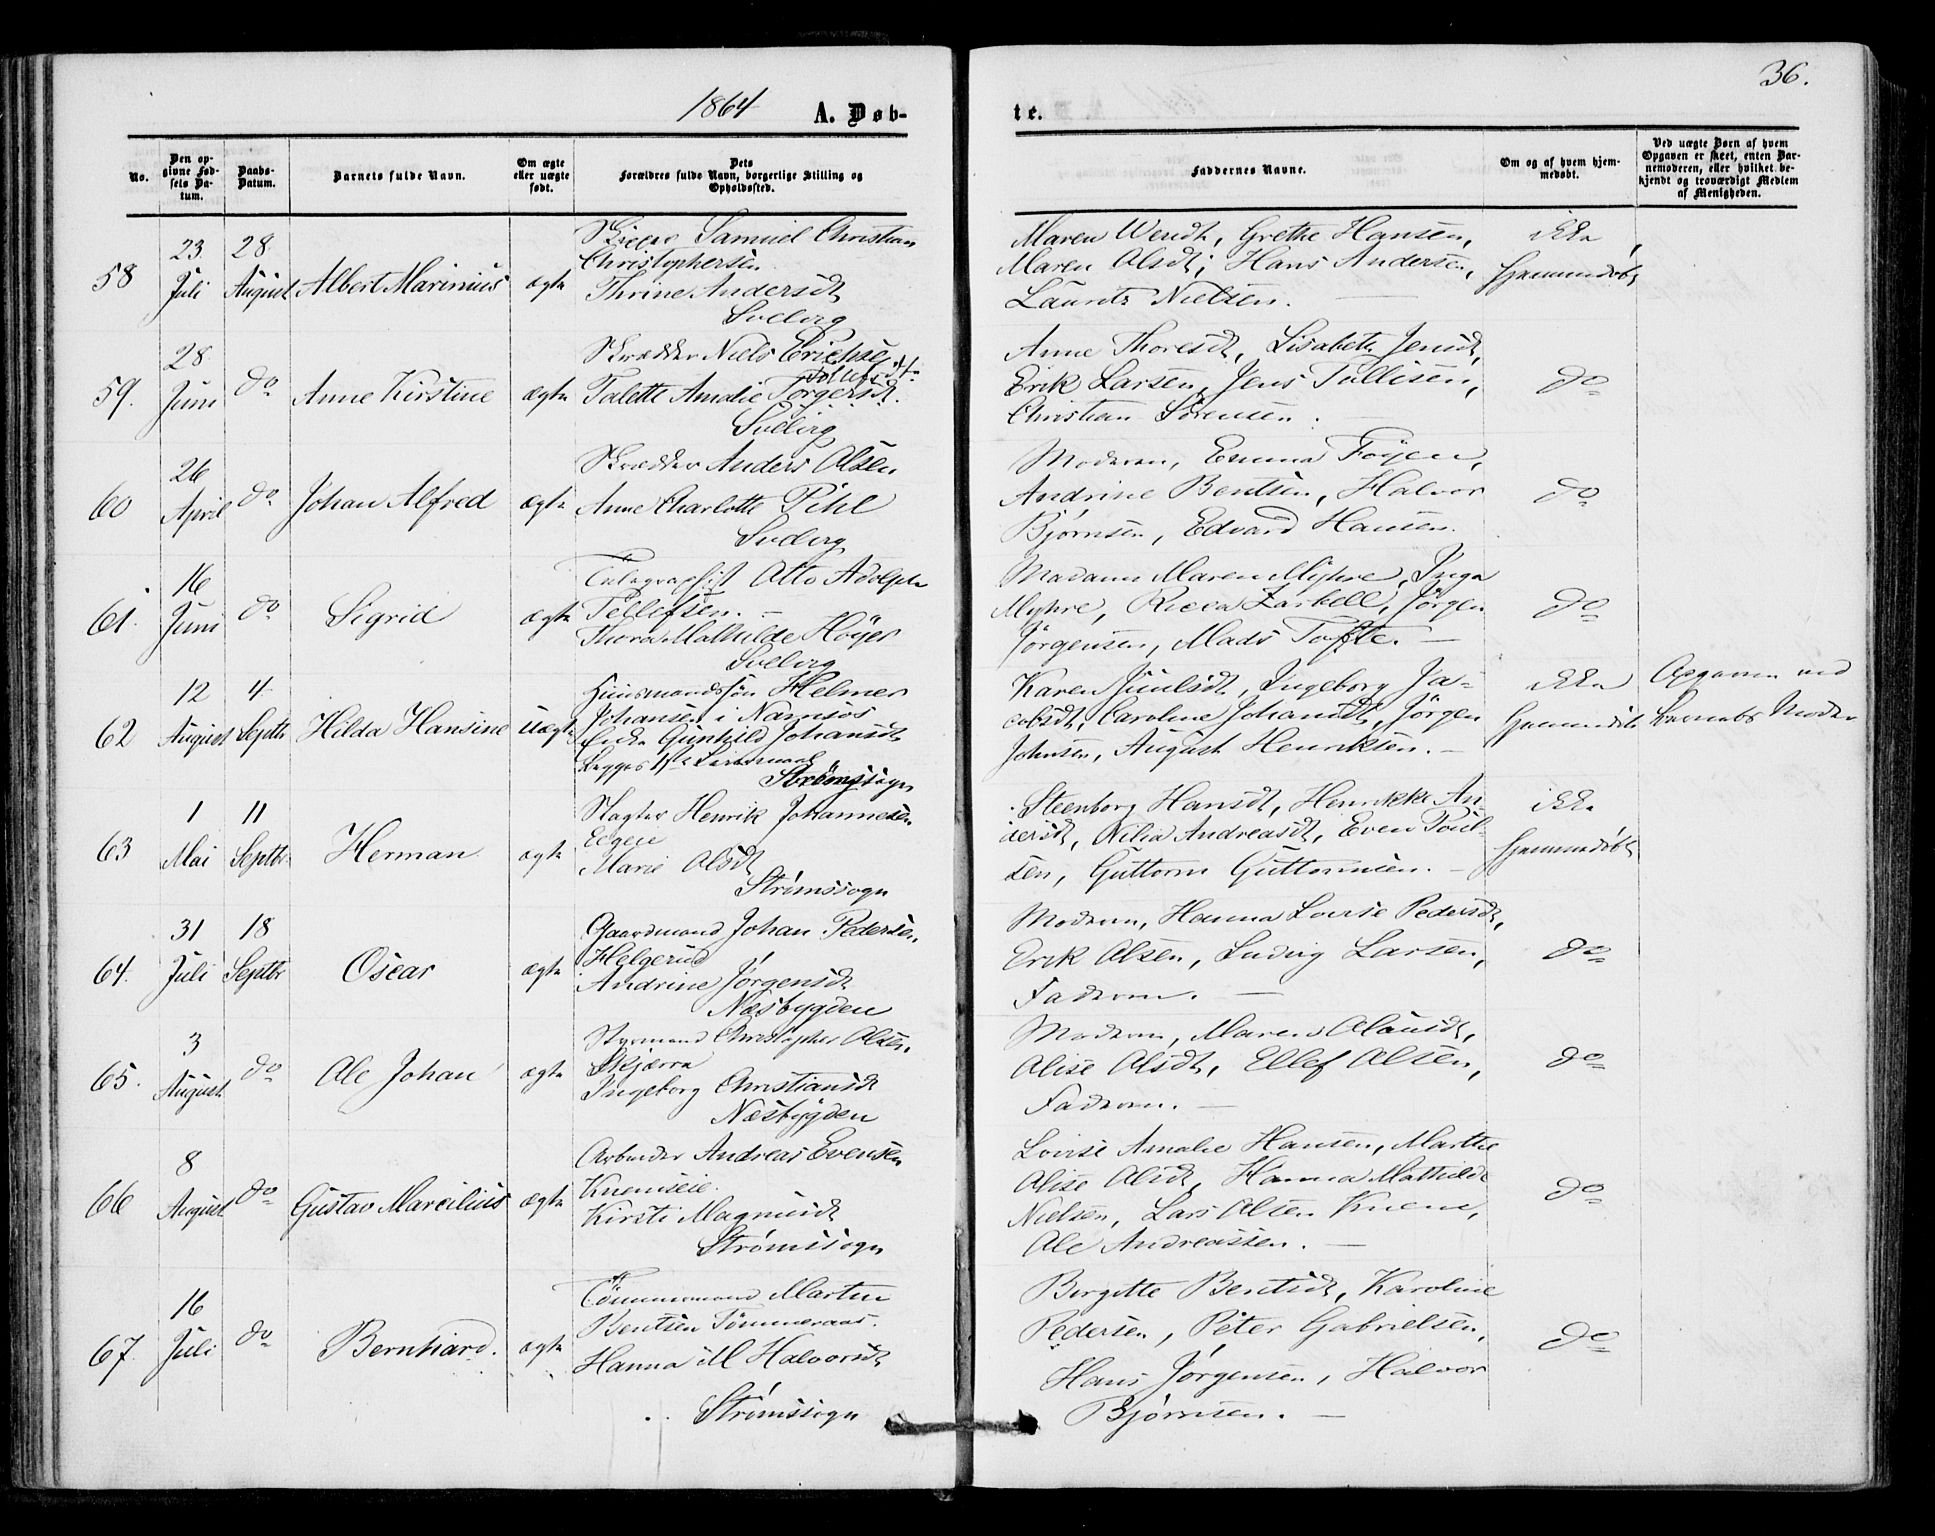 1864
A. Døb-
te.
36.
No.
Den op-
givne Fød-
sels Da-
tum.
Daabs-
Datum.
Barnets fulde Navn.
Om ægte
eller uægte
født.
Dets
Forældres fulde Navn, borgerlige Stilling og
Opholdssted.
Faddernes Navne.
Om og af hvem hjem-
medøbt.
Ved uægte Børn af hvem
Opgaven er skeet, enten Bar-
nemoderen, eller hvilket be-
kjendt og troværdigt Medlem
af Menigheden.
58
23
Juli
28
August
Albert Marinius
ægte
Samuel Christian
Christophersen
Thrine Andersdt
Svelvig
Maren Weridt, Grethe Hansen,
Maren Olsdt, Hans Andersen,
Laurits Nielsen. —
ikke
hjemmedøbt
59.
28
Juni
do
Anne Kirstine
ægte
Skrædder Niels Erichse
Talette Amalie Torgersdt.
Svelvig
Anne Thoresdt, Lisabeth Jensdt,
Erik Larsen, Jens Tollisen,
Christian Sørensen. —
do
60
26
April
do
Johan Alfred
ægte
Skrædder Anders Olsen
Anne Charlotte Pihl
Svelvig
Moderen, Emma Føyen,
Andrine Bentsen, Halvor
Bjørnsen, Edvard Hansen.
do
61.
16
Juni
do
Sigrid
ægte
Telegraphist Otto Adolph
Tellefsen. —
Thora Mathilde Høyer
Svelvig
Madame Maren Myhre, Inga
Myhre, Ricca Zarbell, Jørgen
Jørgensen, Mads Tofte. —
do
62
12
August
4
Septbr
Hilda Hansine
uægte
Huusmandssøn Helmer
Johansen i Namsos
Enke Gunhild Johansdt
Begges 1ste Leiermaal
Strømssogn
Karen Juulsdt, Ingeborg Ja-
cobsdt, Caroline Johansdt, Jørgen
Johnsen, August Henriksen. —
ikke
hjemmedøbt
Opgaven ved
Barnets Moder
63
1
Mai
11
Septbr
Herman
ægte
Slagter Henrik Johannesen
Marie Olsdt
Strømssogn
Steenborg Hansdt, Henrikke An-
dersdt, Nilia Andreasdt, Even Poul-
sen, Guttorm Guttormsen. —
ikke
hjemmedøbt
64.
31
Juli
18
Septbr
Oscar
ægte
Gaardmand Johan Pedersen,
Helgerud
Andrine Jørgensdt
Næsbygden
Moderen, Hanna Lovise Pedersdt,
Erik Olsen, Ludvig Larsen,
Faderen. —
do
65.
3
August
do
Ole Johan
ægte
Styrmand Christopher Olsen,
Skjærra
Ingeborg Christiansdt
Næsbygden
Moderen, Maren Olausdt,
Alise Olsdt, Ellef Olsen,
Faderen. —
do
66
8
August
do
Gustav Marcilius
ægte
Arbeider Andreas Evensen
Knemseie.
Kirsti Magnusdt
Strømssogn
Lovise Amalie Hansen, Marthe
Alise Olsdt, Hanna Mathilde
Nielsen, Lars Olsen Knem,
Ole Andreassen. —
do
67.
16
Juli
do
Bernhard.
ægte
Tømmermand Martin
Bentsen Tømmeraas.
Hanna M Halvorsdt
Strømssogn
Birgitte Bentsdt, Karoline
Pedersen, Peter Gabrielsen,
Hans Jørgensen, Halvor
Bjørnsen. —
do